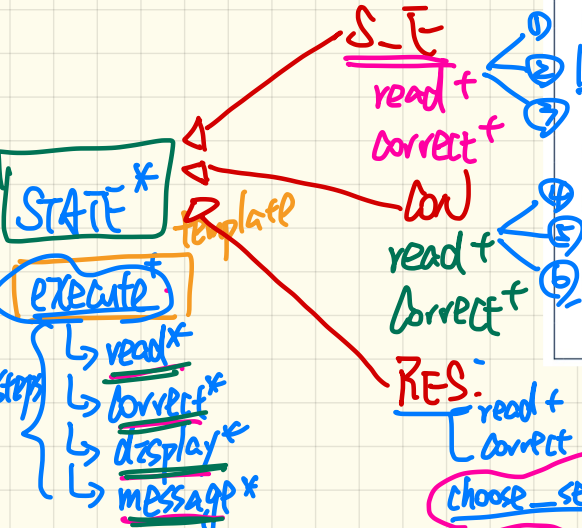 STATE*
template
execute+
read*
correct*
display*
message*
S_E
read +
correct +
①
②
③
CON
read +
correct +
④
⑤
⑥
RES.
read +
correct
choose_se